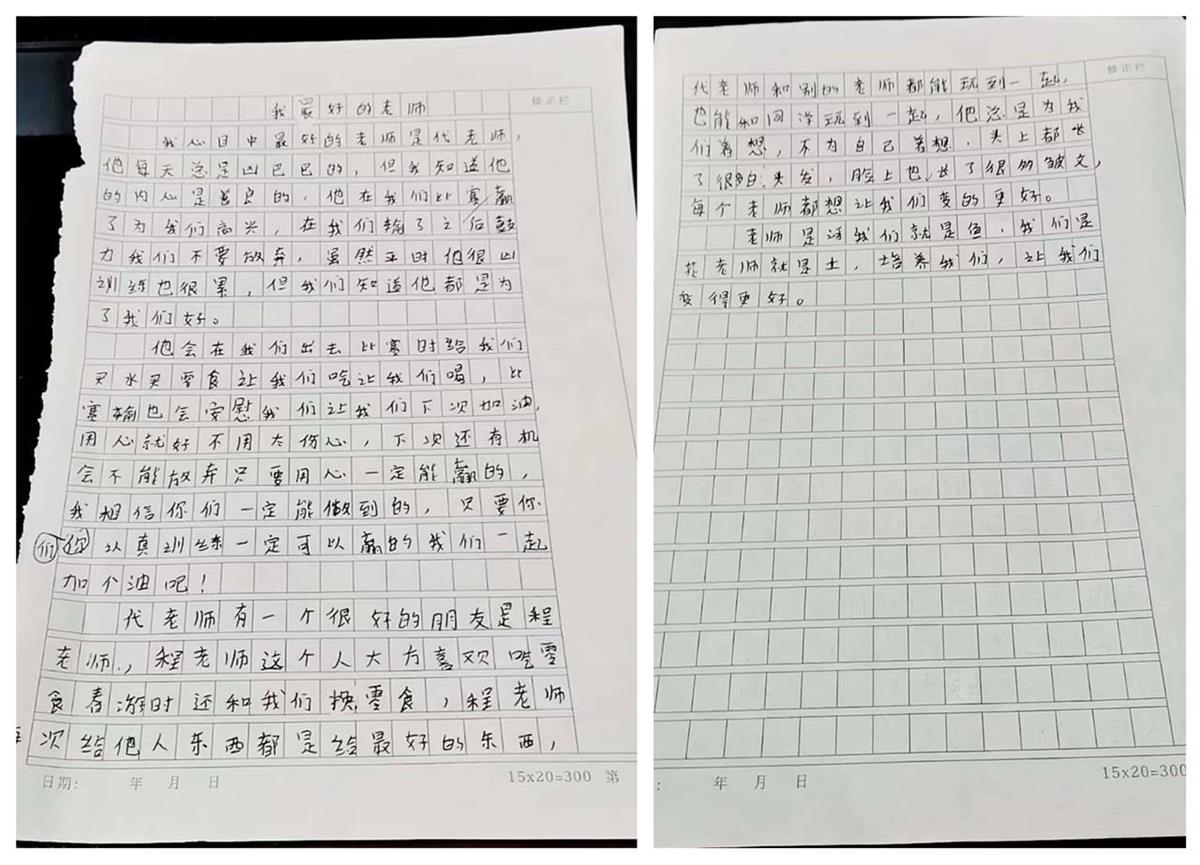 我最好的老师
修正栏
我心目中最好的老师是代老师，
他每天总是凶巴巴的，但我知道他
的内心是善良的，他在我们比赛赢
了为我们高兴，在我们输了之后鼓
力我们不要放弃，虽然平时他很凶
训练也很累，但我们知道他都是为
了我们好。
他会在我们出去比赛时给我们
买水买零食让我们吃让我们喝，比
赛输也会安慰我们让我们下次加油，
用心就好不用太伤心，下次还有机
会不能放弃只要用心一定能赢的，
我相信你们一定能做到的，只要你
们认真训练一定可以赢的我们一起
加个油吧！
代老师有一个很好的朋友是程
老师，程老师这个人大方喜欢吃零
食春游时还和我们换零食，程老师
每次给他人东西都是给最好的东西，
日期： 年 月 日
15x20=300 第
修正栏
代老师和别的老师都能玩到一起，
也能和同学玩到一起，他总是为我
们着想，不为自己着想，头上都长
了很多白头发，脸上也长了很多皱文，
每个老师都想让我们变的更好。
老师是河我们就是鱼，我们是
花老师就是土，培养我们，让我们
变得更好。
： 年 月 日
15x20=300